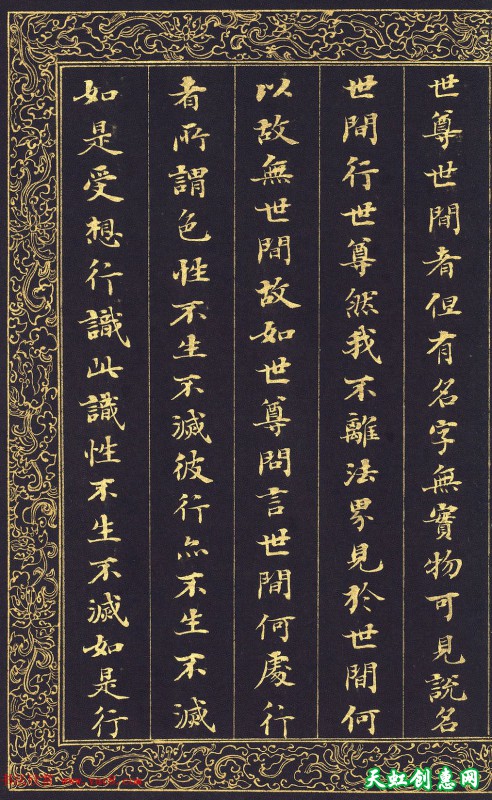 世尊世間者但有名字無實物可見說名
世間行世尊然我不離法界見於世間何
以故無世間故如世尊問言世間何處行
者所謂色性不生不滅彼行亦不生不滅
如是受想行識此識性不生不滅如是行
天虹创惠网